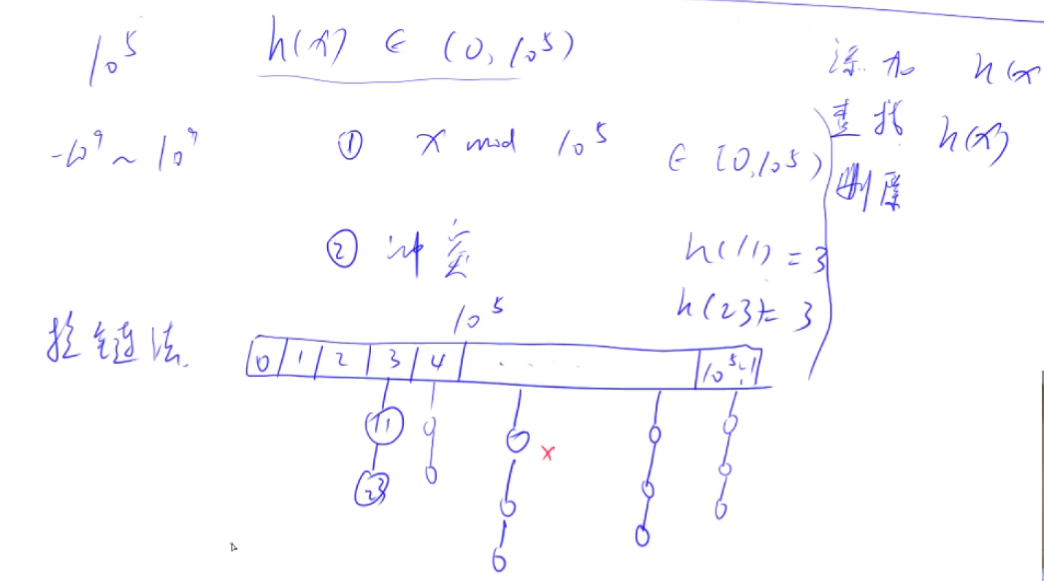 10^5 h(x) ∈ (0, 10^5)
添加 h(x
-10^9 ~ 10^9 ① x mod 10^5 ∈ [0, 10^5)
查找 h(x)
删除
② 冲突 h(11) = 3
h(23) = 3
拉链法. 10^5
0 1 2 3 4 ..... 10^5-1
11
23
x